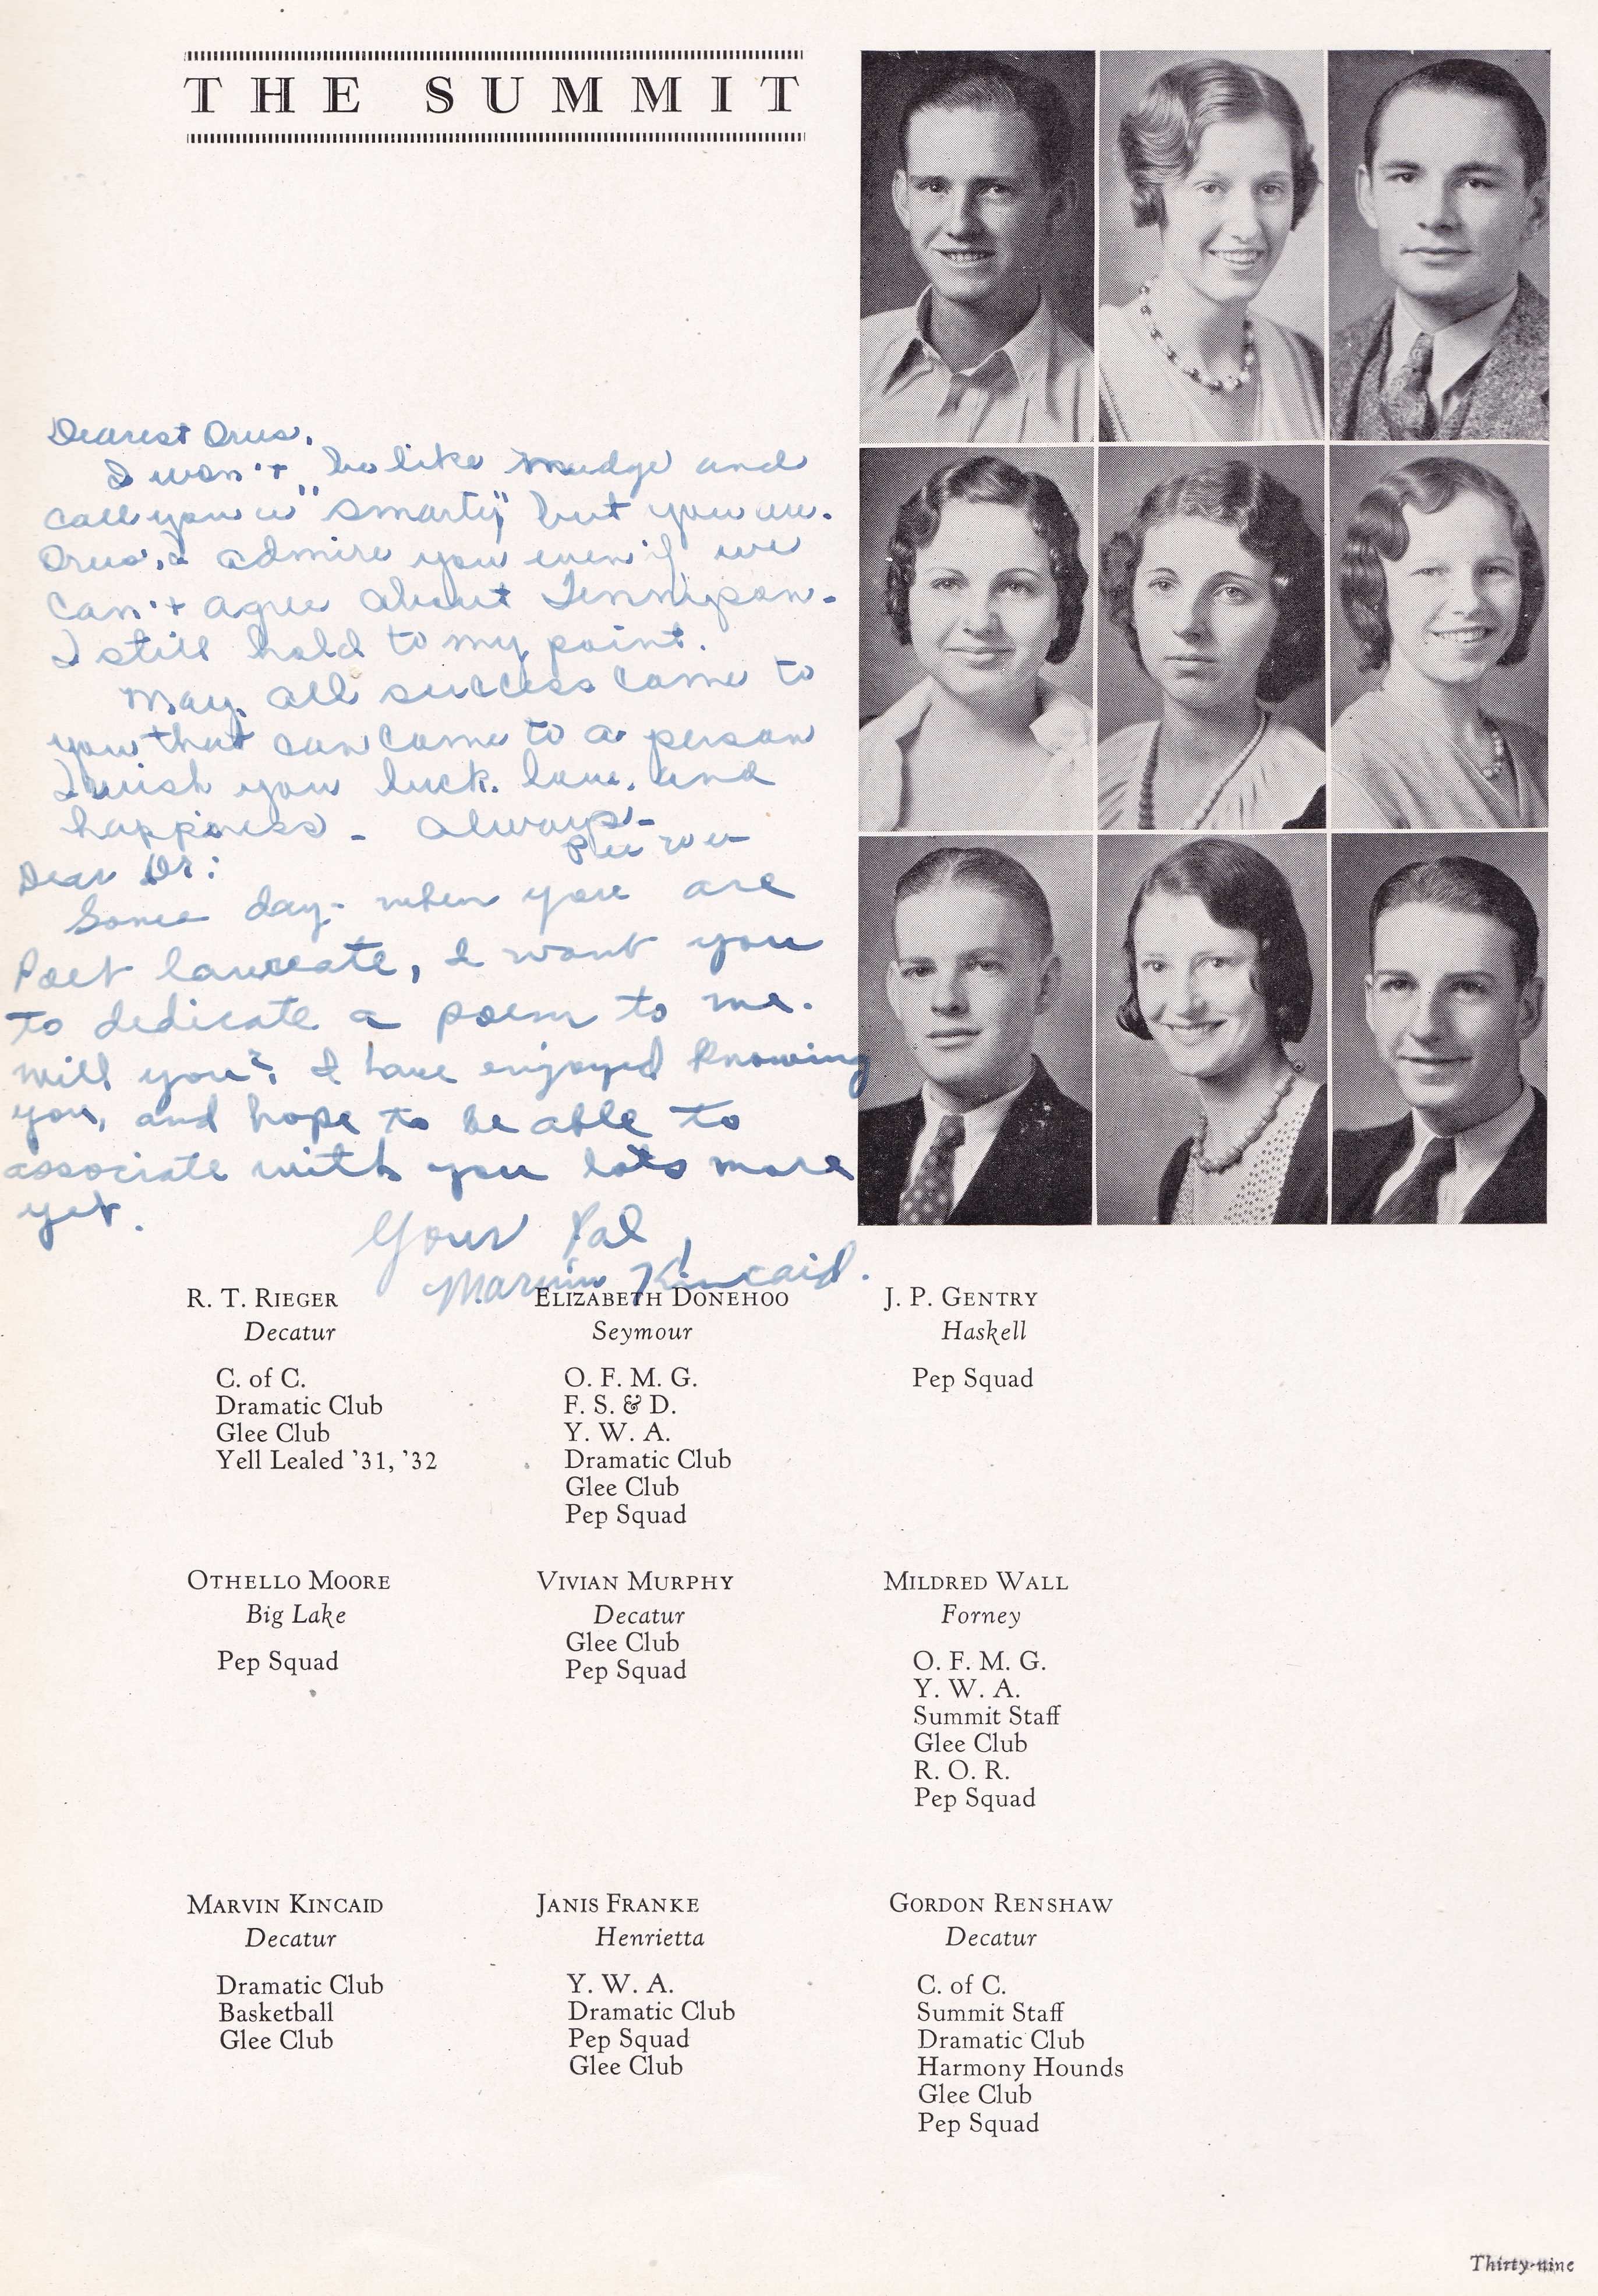 THE SUMMIT
Dearest Orus,
I won't be like Mudge and
call you a "smarty" but you are.
Orus, I admire you even if we
can't agree about Tennyson.
I still hold to my point.
May all success come to
you that can come to a person
I wish you luck, love, and
happiness - Always -
Dear Or:
Some day when you are
Poet laureate, I want you
to dedicate a poem to me.
Will you? I have enjoyed knowing
you, and hope to be able to
associate with you lots more
yet.
Your Pal,
Marvin Kincaid.
R. T. RIEGER
Decatur
C. of C.
Dramatic Club
Glee Club
Yell Lealed '31, '32
ELIZABETH DONEHOO
Seymour
O. F. M. G.
F. S. & D.
Y. W. A.
Dramatic Club
Glee Club
Pep Squad
J. P. GENTRY
Haskell
Pep Squad
OTHELLO MOORE
Big Lake
Pep Squad
VIVIAN MURPHY
Decatur
Glee Club
Pep Squad
MILDRED WALL
Forney
O. F. M. G.
Y. W. A.
Summit Staff
Glee Club
R. O. R.
Pep Squad
MARVIN KINCAID
Decatur
Dramatic Club
Basketball
Glee Club
JANIS FRANKE
Henrietta
Y. W. A.
Dramatic Club
Pep Squad
Glee Club
GORDON RENSHAW
Decatur
C. of C.
Summit Staff
Dramatic Club
Harmony Hounds
Glee Club
Pep Squad
Thirty-nine